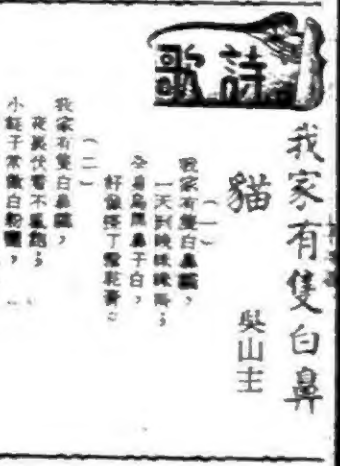 詩歌
我家有隻白鼻
貓
吳山主
(一)
我家有隻白鼻貓,
一天到晚咪咪
全身烏黑鼻子白,
好像搽了雪花膏。
(二)
我家有隻白鼻貓,
夜裏伏着不亂跑;
小 子常 白